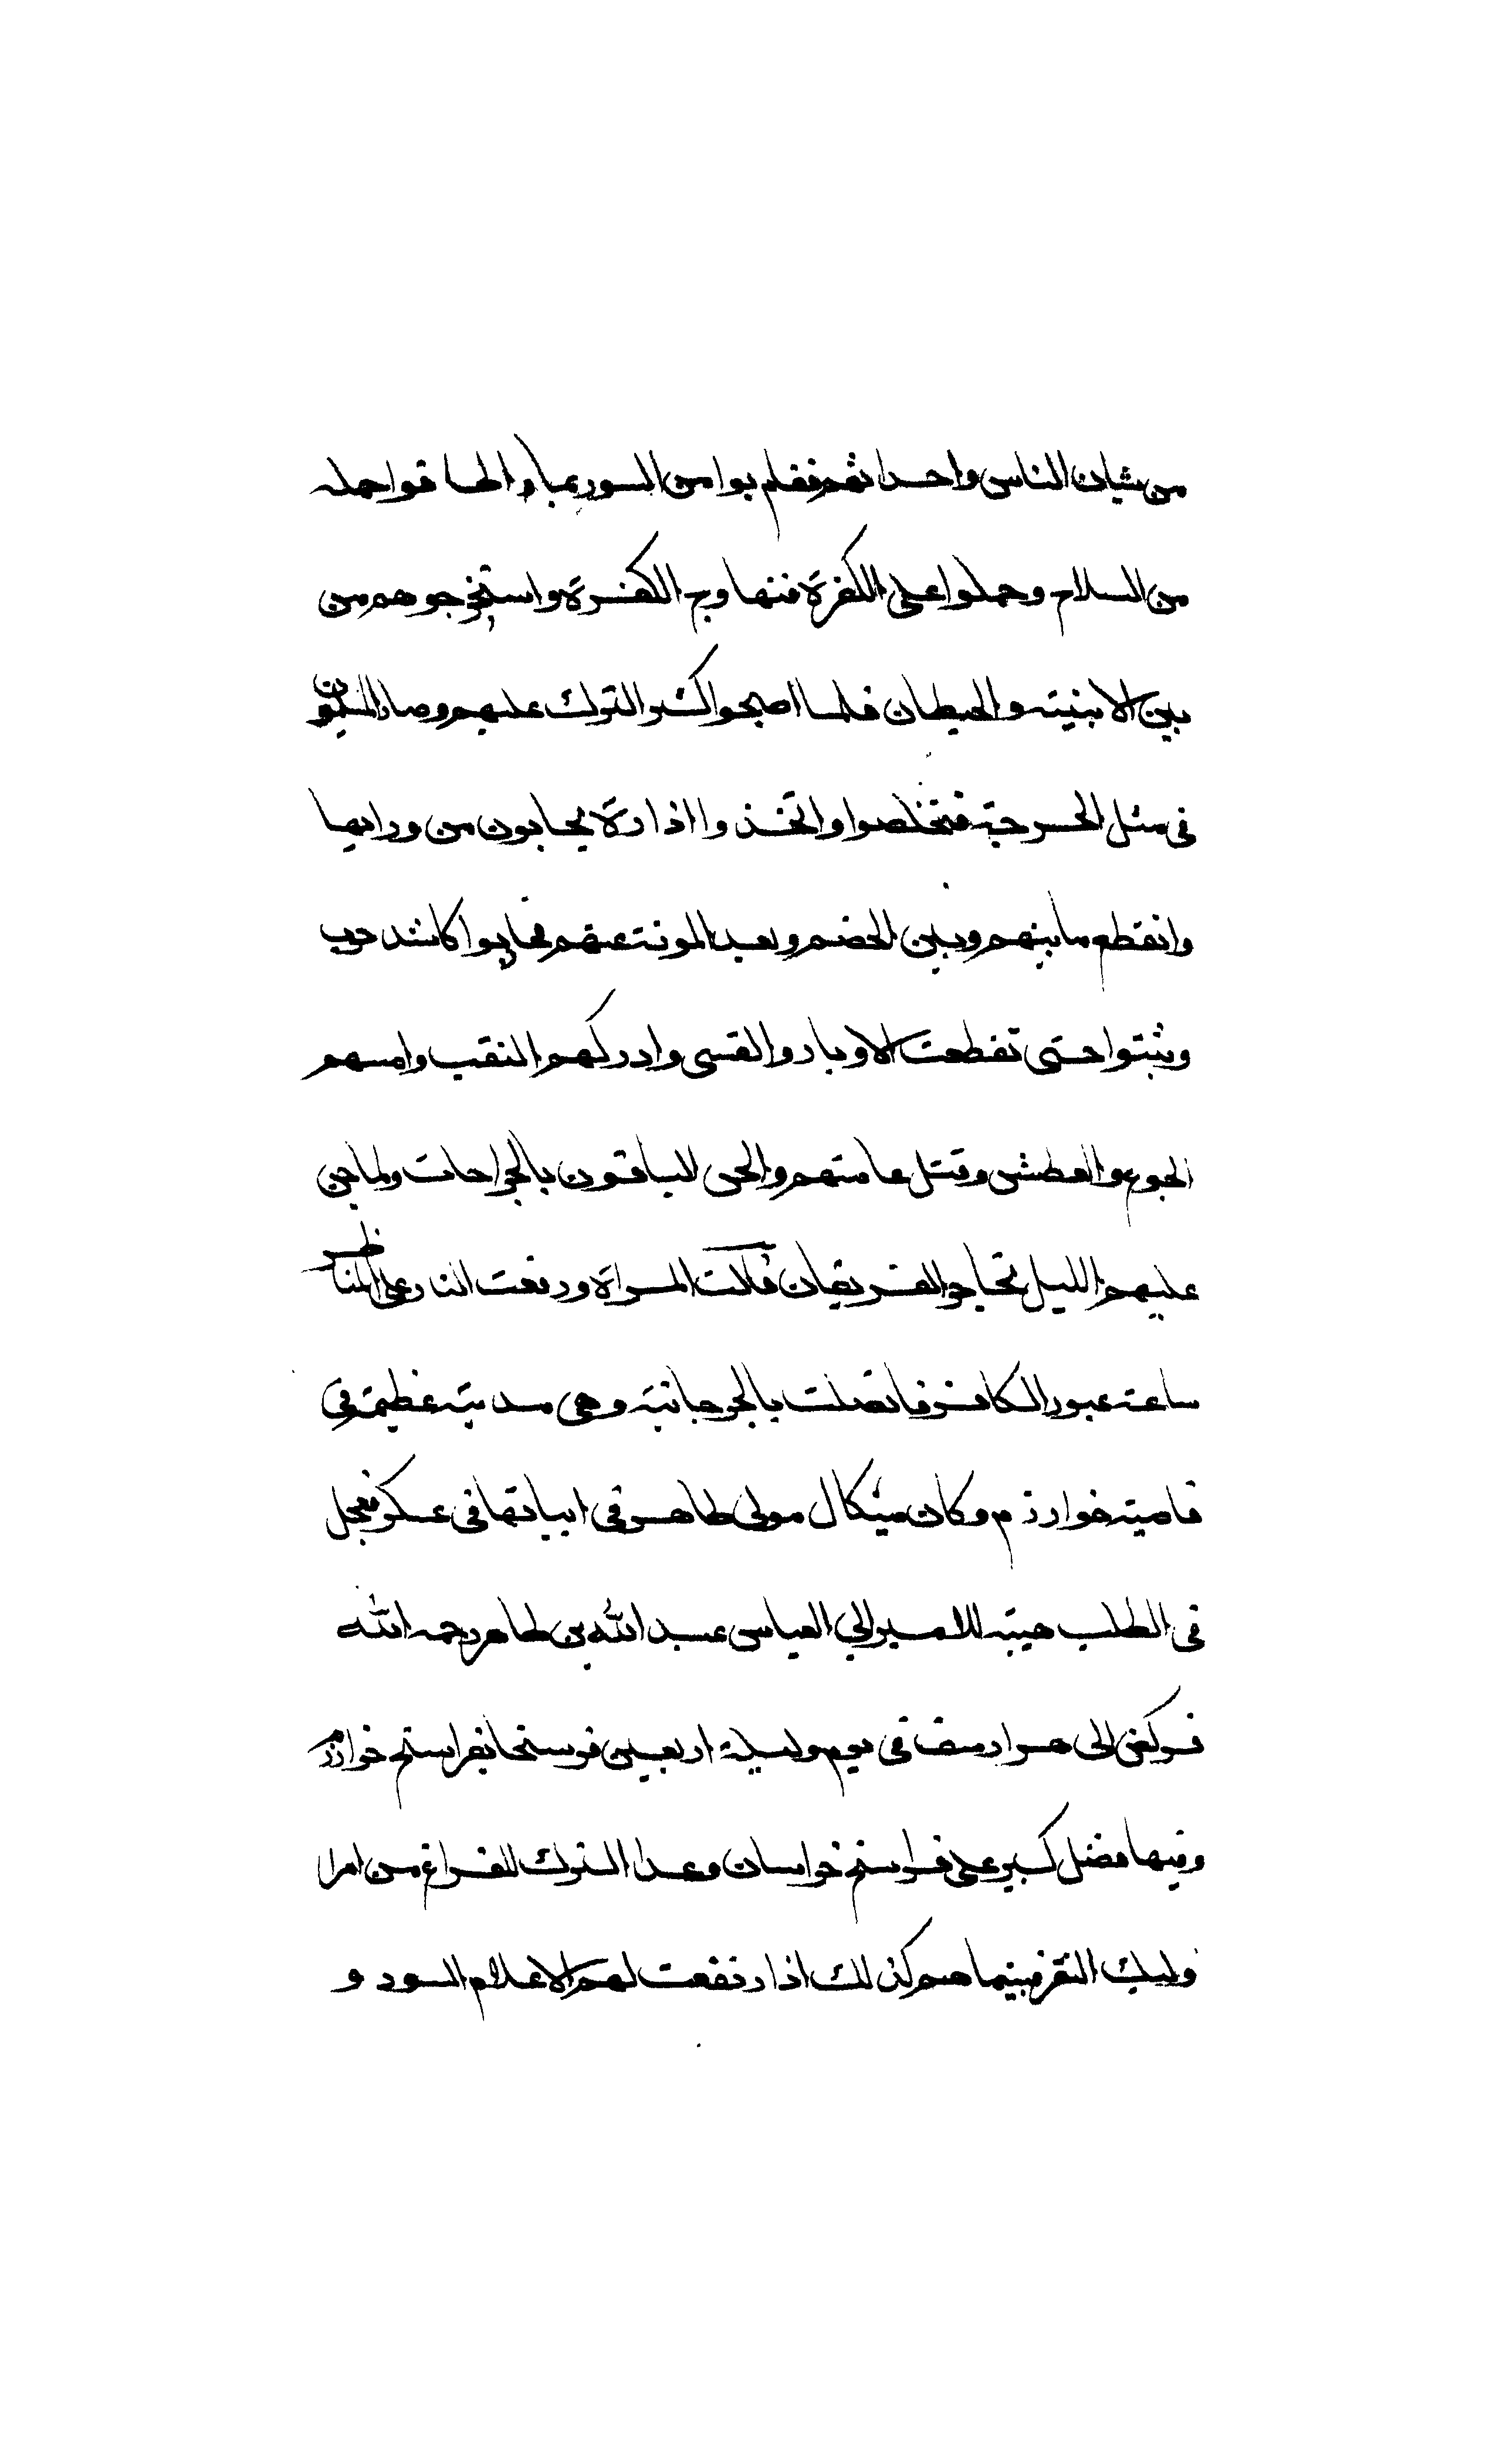 من شبان الناس واحداثهم فقلم بوا من السور بمباو الحا قوا حمله
من السلاح وحملوا على الكفرة فنهاوج الكفرة واستخرجوهم من
بين الابنيته والحيطان فلما اصبحوا اكشر الترك عليهم وصار المسلمون
فى مثل الحسرجة فتخلصوا واتخذ وا اذا رة يحابون من ورايها
وانقطع ما بينهم وبين الخضم وبعد المونة عنهم فحاربوا كاشد حرب
وثبتوا حتى تقطعت الاوبار والقسى وادركهم النقب وامسهم
الجوع والعطش وقتل عامتهم والحى الباقون بالجراحات ولما جن
عليهم الليل تحاجز الفريقان قالت المراة ورفعت النار على المناظر
ساعة عبور الكافر فاتصلت بالجرجانية وهى مدينة عظيمة فى
قاصية خوارزم وكان ميكال مولى طاهر فى ابياتها فى عسكر فعجل
فى الطلب هيبة للامير الى العباس عبد الله بن طاهر رحمه الله
فركض الى هوارسف فى يوم وليلة اربعين فرسخا بفراسخ خوارزم
وفيها فضل كبير على فراسخ خراسان وعدا الترك للفراغ من امرا
وليك النفر فبينما هم كذلك اذا رتفعت لهم الاعلام السود و